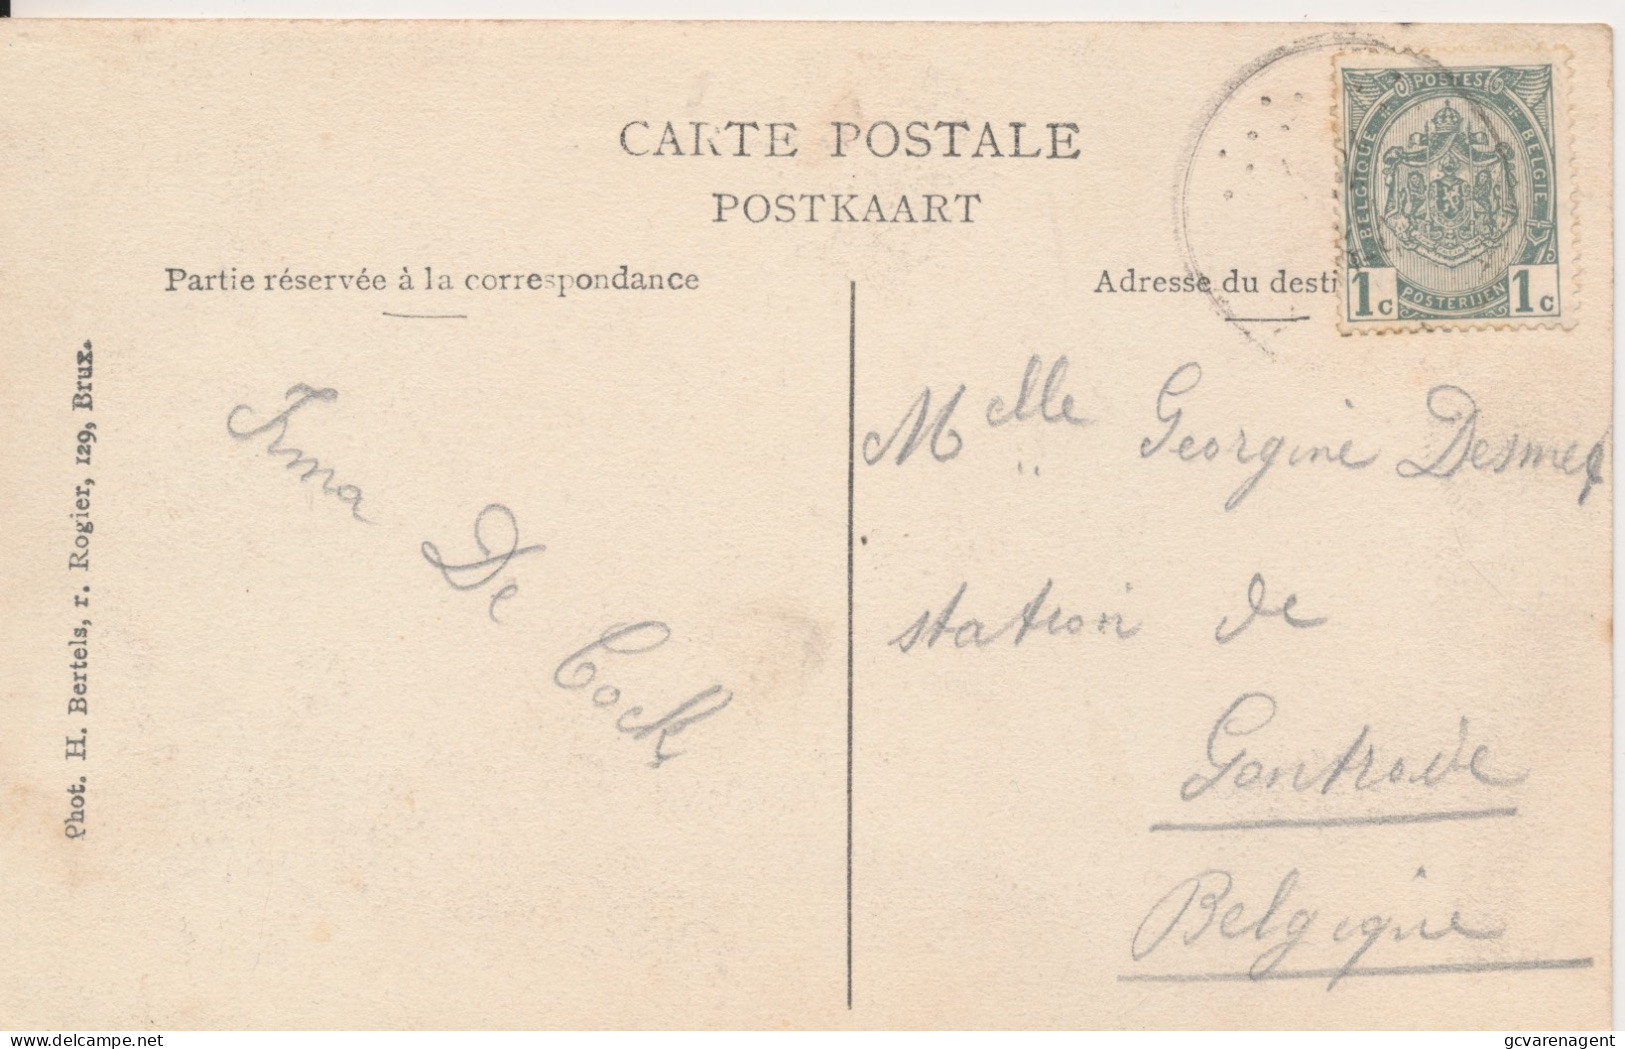 CARTE POSTALE
POSTKAART
Partie réservée à la correspondance
Adresse du desti
POSTES
BELGIQUE
BELGIE
POSTERIJEN
1c 1c
Phot. H. Bertels, r. Rogier, 129, Brux.
Irma De Cock
Melle Georgine Desmet
station de
Gontrode
Belgique
delcampe.net
gcvarenagent